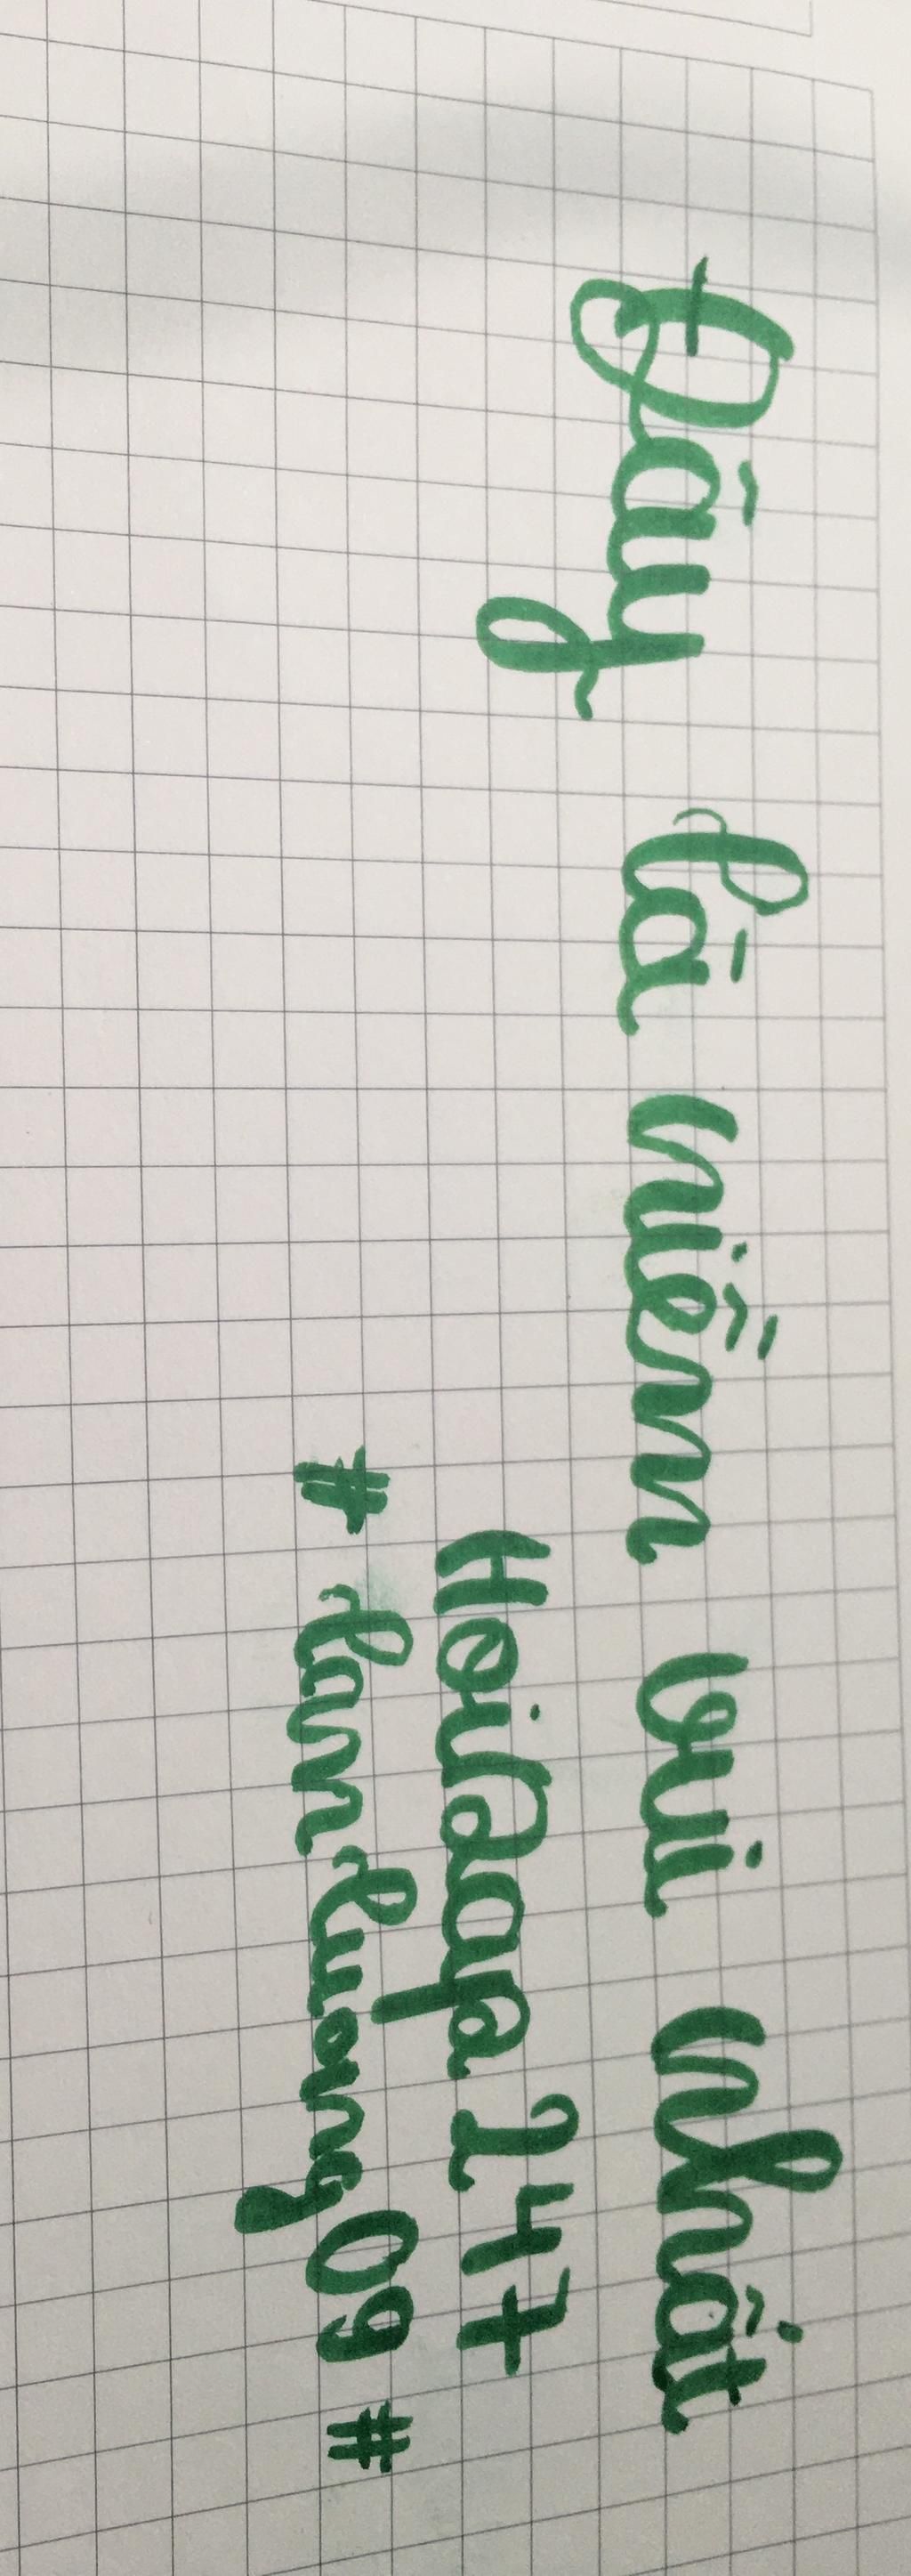 Đây là niềm vui nhất
Hoidap247
# lamluong09 #